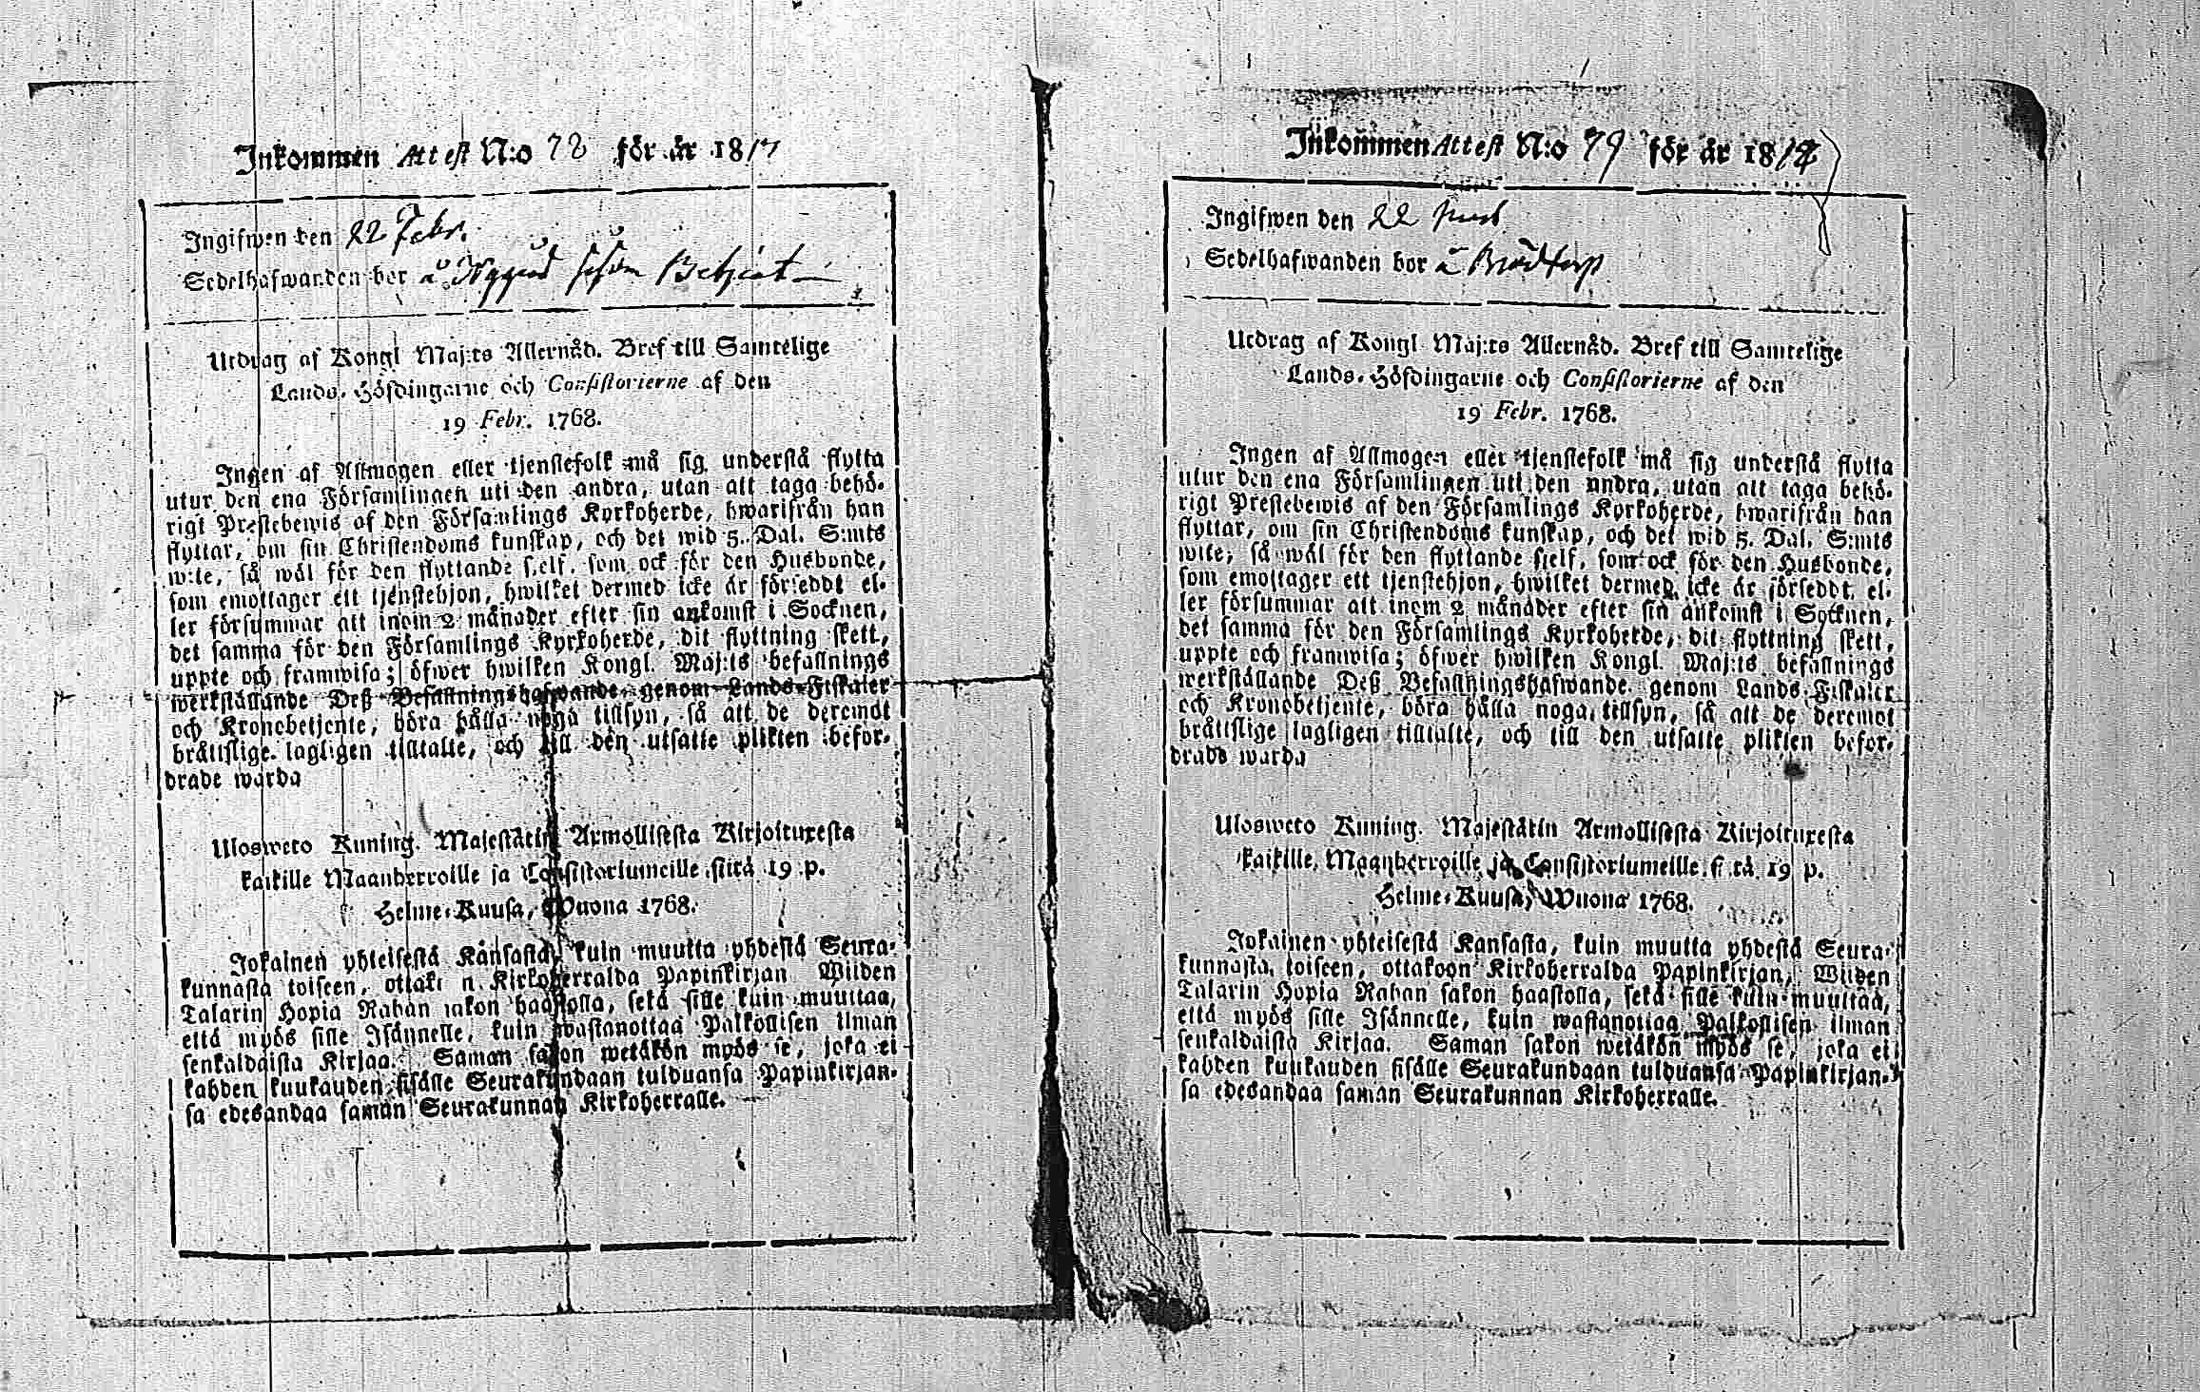 Inkommen Attest N:o 78 för år 1817
Ingifwen den 22 Febr.
Sedelhafwanden bor å
Utdrag af Kongl Maj:ts Allernåd. Bref till Samtelige
Lands-Höfdingarne och Consistorierne af den
19 Febr. 1768.
Ingen af Allmogen eller tjenstefolk må sig understå flytta
utur den ena Församlingen uti den andra, utan att taga behö-
rigt Prestebewis af den Församlings Kyrkoherde, hwarifrån han
flyttar, om sin Christendoms kunskap, och det wid 5. Dal. S:mts
wite, så wäl för den flyttande sjelf, som ock för den Husbonde,
som emottager ett tjenstehjon, hwilket dermed icke är förseddt el-
ler försummar att inom 2 månader efter sin ankomst i Socknen,
det samma för den Församlings Kyrkoherde, dit flyttning skett,
uppte och framwisa; öfwer hwilken Kongl. Maj:ts befallnings
werkställande Deß Befallningshafwande genom Lands-Fiskaler
och Kronobetjente, böra hålla noga tillsyn, så att de deremot
bråttslige lagligen tilltalte, och till den utsatte plikten befor-
drade warda
Ulosweto Kuning. Majestätin Armollisesta Kirjoituxesta
kaikille Maanherroille ja Consistoriumeille siitä 19 p.
Helme-Kuusa, Wuona 1768.
Jokainen yhteisestä Kansasta, kuin muutta yhdestä Seura-
kunnasta toiseen, ottakon Kirkoherralda Papinkirjan Wiiden
Talarin Hopia Rahan sakon haastolla, sekä sille kuin muuttaa,
että myös sille Isännelle, kuin wastanottaa Palkollisen ilman
senkaldaista Kirjaa. Saman sakon wetäkön myös se, joka ei
kahden kuukauden sisälle Seurakundaan tulduansa Papinkirjan-
sa edesandaa saman Seurakunnan Kirkoherralle.
Inkommen Attest N:o 79 för år 1812
Ingifwen den 22
Sedelhafwanden bor å Brödtorp
Utdrag af Kongl Maj:ts Allernåd. Bref till Samtelige
Lands-Höfdingarne och Consistorierne af den
19 Febr. 1768.
Ingen af Allmogen eller tjenstefolk må sig understå flytta
utur den ena Församlingen uti den andra, utan att taga behö-
rigt Prestebewis af den Församlings Kyrkoherde, hwarifrån han
flyttar, om sin Christendoms kunskap, och det wid 5. Dal. S:mts
wite, så wäl för den flyttande sjelf, som ock för den Husbonde,
som emottager ett tjenstehjon, hwilket dermed icke är förseddt, el-
ler försummar att inom 2 månader efter sin ankomst i Socknen,
det samma för den Församlings Kyrkoherde, dit flyttning skett,
uppte och framwisa; öfwer hwilken Kongl. Maj:ts befallnings
werkställande Deß Befallningshafwande genom Lands-Fiskaler
och Kronobetjente, böra hålla noga tillsyn, så att de deremot
bråttslige lagligen tilltalte, och till den utsatte plikten befor-
drade warda
Ulosweto Kuning. Majestätin Armollisesta Kirjoituxesta
kaikille Maanherroille ja Consistoriumeille siitä 19 p.
Helme-Kuusa, Wuona 1768.
Jokainen yhteisestä Kansasta, kuin muutta yhdestä Seura-
kunnasta toiseen, ottakoon Kirkoherralda Papinkirjan, Wiiden
Talarin Hopia Rahan sakon haastolla, sekä sille kuin muuttaa,
että myös sille Isännelle, kuin wastanottaa Palkollisen ilman
senkaldaista Kirjaa. Saman sakon wetäkön myös se, joka ei
kahden kuukauden sisälle Seurakundaan tulduansa Papinkirjan-
sa edesandaa saman Seurakunnan Kirkoherralle.